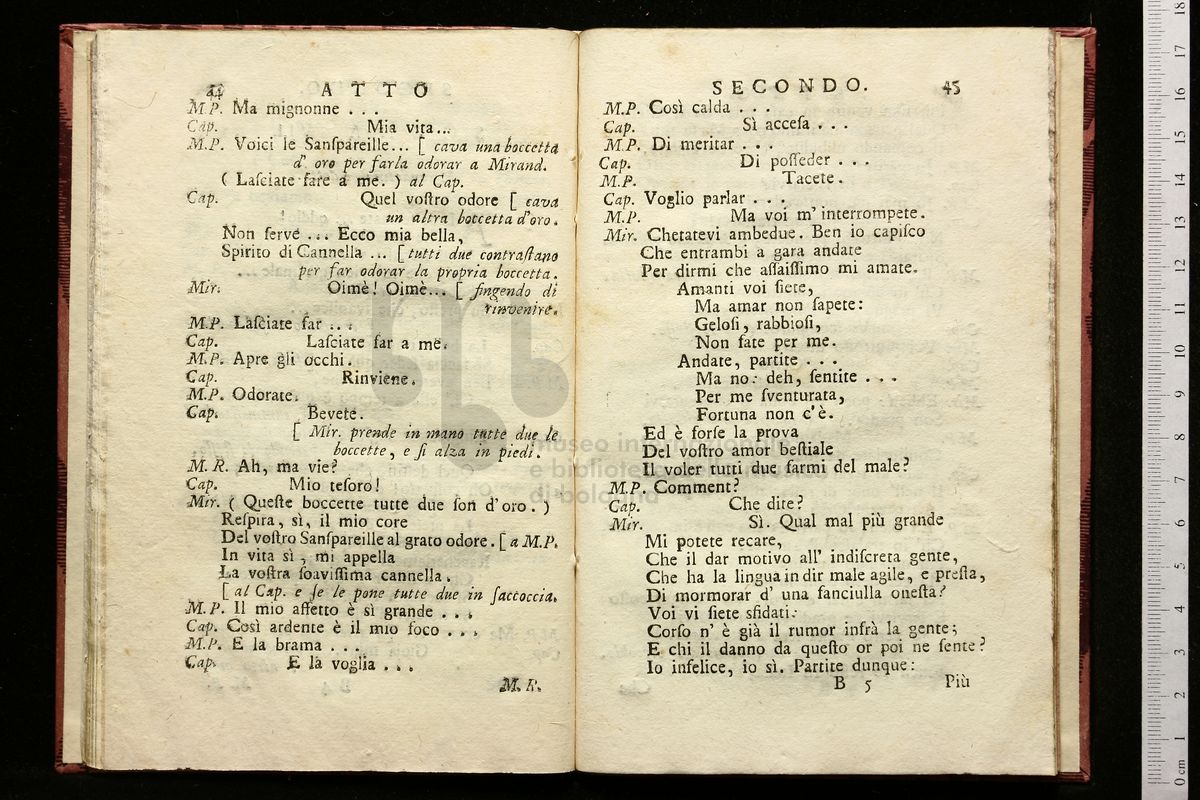 44 ATTO
M.P. Ma mignonne . . .
Cap. Mia vita...
M.P. Voici le Sanſpareille... [ cava una boccetta
d' oro per farla odorar a Mirand.
( Laſciate fare a me. ) al Cap.
Cap. Quel voſtro odore [ cava
un altra boccetta d'oro.
Non ſerve ... Ecco mia bella,
Spirito di Cannella ... [ tutti due contraſtano
per far odorar la propria boccetta.
Mir. Oimè! Oimè... [ fingendo di
rinvenire.
M.P. Laſciate far . . .
Cap. Laſciate far a me.
M.P. Apre gli occhi.
Cap. Rinviene.
M.P. Odorate.
Cap. Bevete.
[ Mir. prende in mano tutte due le
boccette, e ſi alza in piedi.
M. R. Ah, ma vie?
Cap. Mio teſoro!
Mir. ( Queſte boccette tutte due ſon d'oro. )
Reſpira, sì, il mio core
Del voſtro Sanſpareille al grato odore. [ a M.P.
In vita sì, mi appella
La voſtra ſoaviſſima cannella.
[ al Cap. e ſe le pone tutte due in ſaccoccia.
M.P. Il mio affetto è sì grande . . .
Cap. Così ardente è il mio foco . . .
M.P. E la brama . . .
Cap. E la voglia . . .
M. R.
SECONDO. 45
M.P. Così calda . . .
Cap. Sì acceſa . . .
M.P. Di meritar . . .
Cap. Di poſſeder . . .
M.P. Tacete.
Cap. Voglio parlar . . .
M.P. Ma voi m' interrompete.
Mir. Chetatevi ambedue. Ben io capiſco
Che entrambi a gara andate
Per dirmi che aſſaiſſimo mi amate.
Amanti voi ſiete,
Ma amar non ſapete:
Geloſi, rabbioſi,
Non fate per me.
Andate, partite . . .
Ma no: deh, ſentite . . .
Per me ſventurata,
Fortuna non c'è.
Ed è forſe la prova
Del voſtro amor beſtiale
Il voler tutti due farmi del male?
M.P. Comment?
Cap. Che dite?
Mir. Sì. Qual mal più grande
Mi potete recare,
Che il dar motivo all' indiſcreta gente,
Che ha la lingua in dir male agile, e preſta,
Di mormorar d' una fanciulla oneſta?
Voi vi ſiete sfidati:
Corſo n' è già il rumor infrà la gente;
E chi il danno da queſto or poi ne ſente?
Io infelice, io sì. Partite dunque:
B 5 Più
museo internazionale
e biblioteca della musica
di bologna